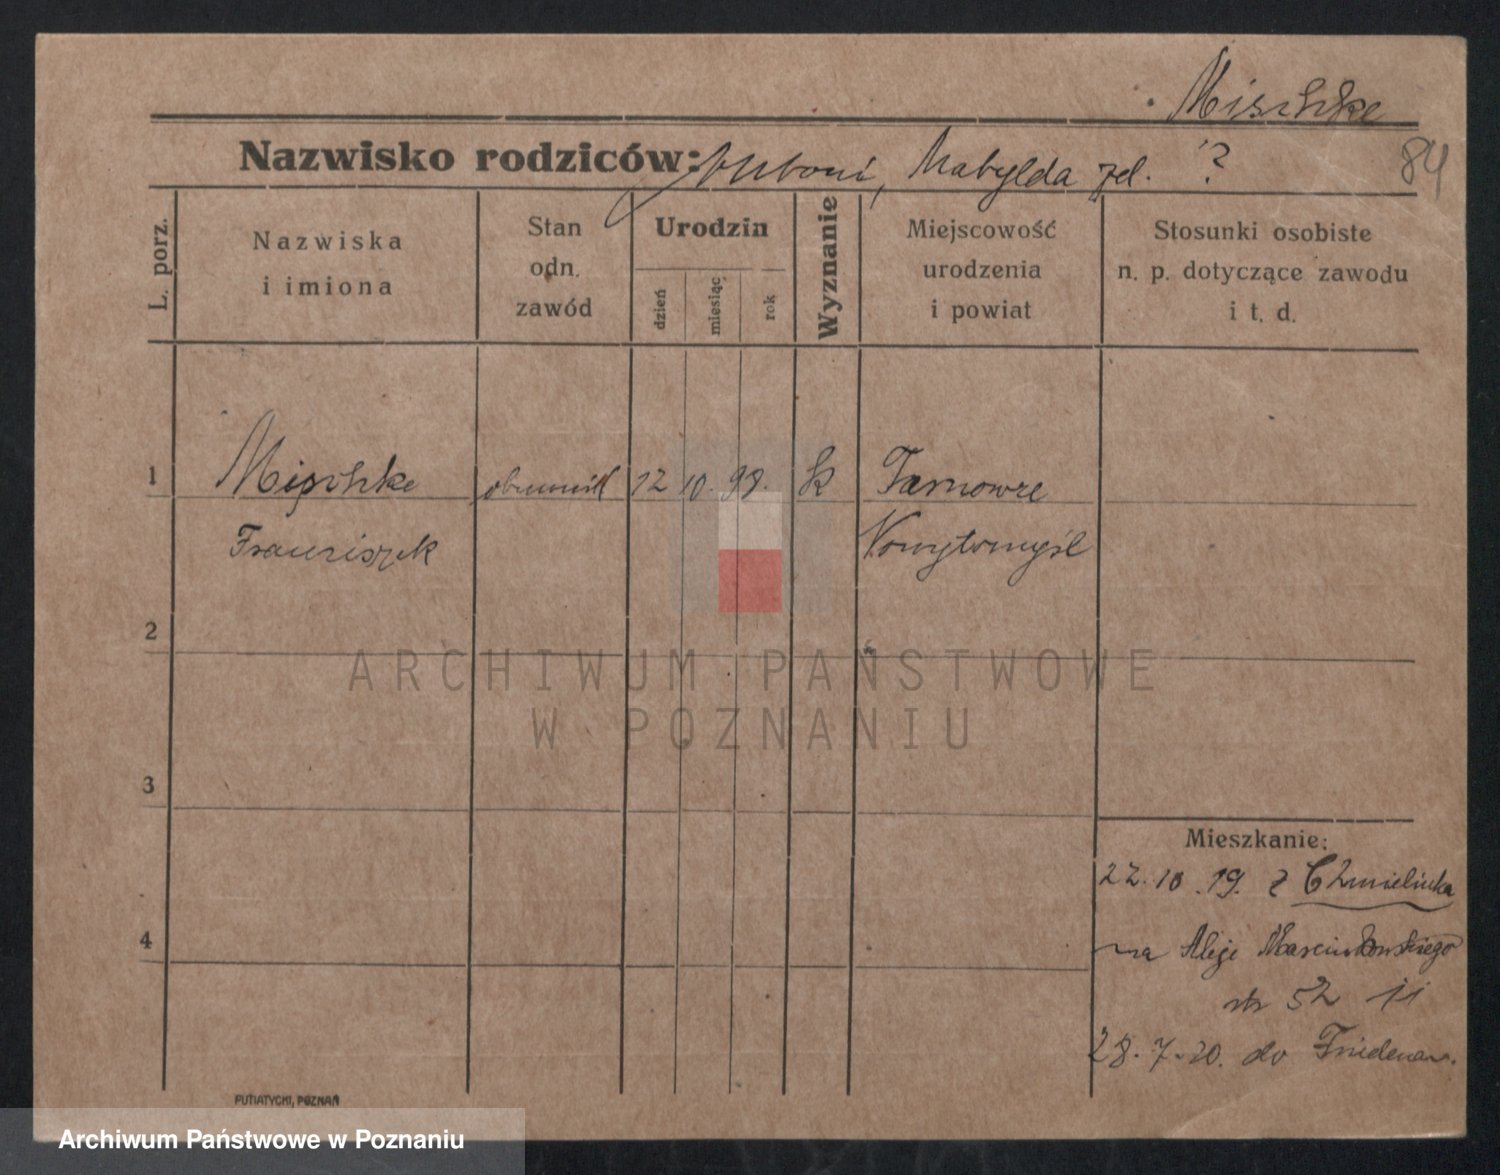 Mischke
Nazwisko rodziców: Antoni, Matylda zd. ?
84
L. porz.
Nazwiska i imiona
Stan odn. zawód
Urodzin
dzień
miesiąc
rok
Wyznanie
Miejscowość urodzenia i powiat
Stosunki osobiste n. p. dotyczące zawodu i t. d.
1 Mischke 12 10. 98. k Tarnowze
Franciszek Nowytomyśl
2
3
4
Mieszkanie:
22.10.19. z Chmielinka
na Aleje Marcinkowskiego
52 II
28.7.20. do Friedenau.
PUTIATYCKI, POZNAŃ
ARCHIWUM PAŃSTWOWE
W POZNANIU
Archiwum Państwowe w Poznaniu